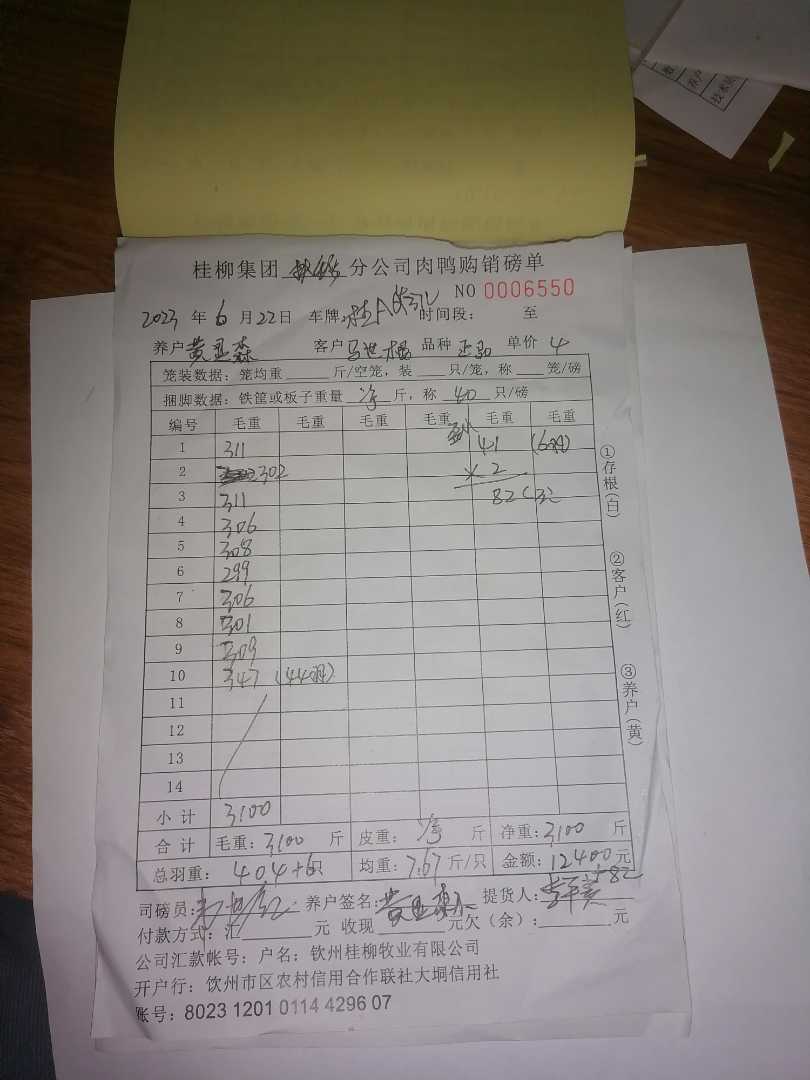 桂柳集团 分公司肉鸭购销磅单
NO 0006550
2023 年 6 月 22 日 车牌: 时间段: 至
养户 黄亚森 客户 马世 品种 正品 单价 4
笼装数据: 笼均重 斤/空笼, 装 只/笼, 称 笼/磅
捆脚数据: 铁筐或板子重量 净 斤, 称 40 只/磅
编号 毛重 毛重 毛重 毛重 毛重 毛重
1 311 41 (6羽)
2 302 × 2
3 311 82
4 306
5 308
6 299
7 306
8 301
9 309
10 347 (44羽)
11
12
13
14
小计 3100
合计 毛重: 3100 斤 皮重: 净 斤 净重: 3100 斤
总羽重: 404+6只 均重: 7.67 斤/只 金额: 12400 元
+82
司磅员: 养户签名: 黄亚森 提货人:
付款方式: 汇 元 收现 元欠(余): 元
公司汇款帐号: 户名: 钦州桂柳牧业有限公司
开户行: 饮州市区农村信用合作联社大垌信用社
账号: 8023 1201 0114 4296 07
①存根(白)
②客户(红)
③养户(黄)
养户
技术员